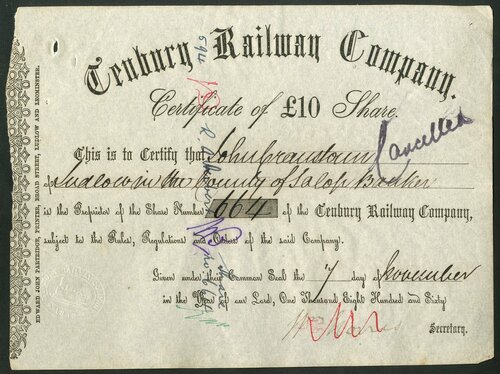 Tenbury Railway Company.
Certificate of £10 Share.
This is to Certify that John Cranstoun
Cancelled
of Ludlow in the County of Salop Banker
is the Proprietor of the Share Number 664 of the Tenbury Railway Company,
subject to the Rules, Regulations and Orders of the said Company.
Given under their Common Seal the 7 day of November
in the Year of our Lord, One Thousand Eight Hundred and Sixty
Secretary.
EDWARD JOHN PARTRIDGE, PRINTER, BROAD STREET, LUDLOW AND LEOMINSTER.
594